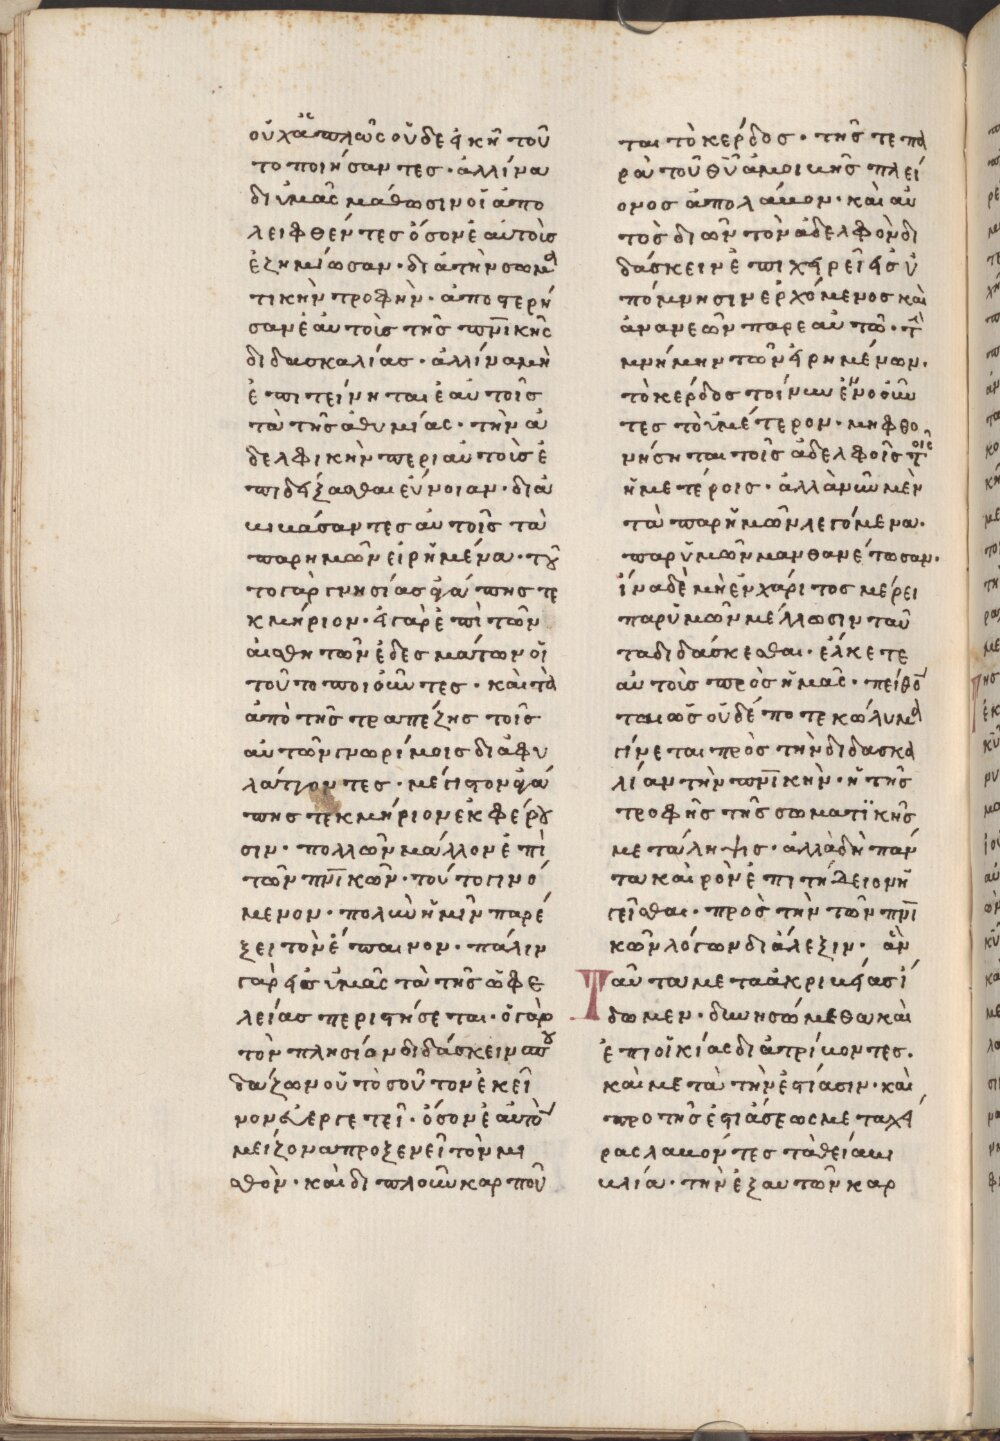 οὐχ ἁπλῶς οὐδὲ εἰκῆ τοῦ
το ποιήσαντες· ἀλλ ἵνα
δι ὑμᾶς μάθωσιν οἱ ἀπο
λειφθέντες ὅσον ἑαυτοὺς
ἐζημίωσαν· διὰ τὴν σωμα
τικὴν τροφὴν· ἀποστερή
σαν ἑαυτοὺς τῆς πνικῆς
διδασκαλίας· ἀλλ ἵνα μὴ
ἐπιτείνηται ἑαυτοῖς
τὰ τῆς ἀθυμίας· τὴν ἀ
δελφικὴν περὶ αὐτοὺς ἐ
πιδείξασθαι εὔνοιαν· δια
βιβάσαντες αὐτοῖς τὰ
παρ ἡμῶν εἰρημένα· τοῦ
το γὰρ γνησίας ἀγάπης τε
κμήριον· εἰ γὰρ ἐπὶ τῶν
αἰσθητῶν ἐδεσμάτων οἱ
τοῦτο ποιοῦντες· καὶ τὰ
ἀπὸ τῆς τραπέζης τοῖς
αὐτῶν γνωρίμοις διαφυ
λάττοντες· μέγιστον ἀγά
πης τεκμήριον ἐκφέρου
σιν· πολλῶν μᾶλλον ἐπὶ
τῶν πνικῶν· τοῦτο γινό
μενον· πολὺν ἡμῖν παρέ
ξει τὸν ἔπαινον· πάλιν
γὰρ εἰς ὑμᾶς τὰ τῆς ὠφε
λείας περιστήσεται· ὁ γὰρ
τὸν πλησίον διδάσκειν σπου
δάζων οὐ τοσοῦτον ἐκεῖ
νον εὐεργετεῖ· ὅσον ἑαυτὸν
μείζονα προξενεῖ τὸν μι
σθὸν· καὶ διπλοῦν καρποῦ
ται τὸ κέρδος· τῆς τε πα
ρὰ τοῦ θῦ ἀμοιβῆς πλεί
ονος ἀπολαύων· καὶ αὐ
τὸς δι ὧν τὸν ἀδελφὸν δι
δάσκειν ἐπιχειρεῖ εἰς ὑ
πόμνησιν ἐρχόμενος καὶ
ἀνανεῶν παρ ἑαυτῶ· τὴν
μνήμην τῶν εἰρημένων·
τὸ κέρδος τοίνυν ἐννοοῦν
τες τὸ ὑμέτερον· μὴ φθο
νήσηται τοῖς ἀδελφοῖς τοῖς
ἡμετέροις· ἀλλὰ νῦν μὲν
τὰ παρ ἡμῶν λεγόμενα·
παρ ὑμῶν μανθανέτωσαν·
ἵνα δὲ μὴ ἐν χάριτος μέρει
παρ ὑμῶν μέλλωσιν ταῦ
τα διδάσκεσθαι· ἕλκετε
αὐτοὺς πρὸς ἡμᾶς· πείθον
ται ὡς οὐδέποτε κώλυμα
γίνεται πρὸς τὴν διδασκα
λίαν τὴν πνικὴν· ἡ τῆς
τροφῆς τῆς σωματϊκῆς
μετάληψις· ἀλλὰ δὴ πάν
τα καιρὸν ἐπιτήδειον ἡ
γεῖσθαι· πρὸς τὴν τῶν πνι
κῶν λόγων διάλεξιν· ἂν
ταῦτα μετὰ ἀκριβείας ἴ
δωμεν· δυνησώμεθα καὶ
ἐπ οἰκίας διατρίβοντες·
καὶ μετὰ τὴν ἑστίασιν· καὶ
προ τῆς ἑστιάσεως μετὰ χεῖ
ρας λαβόντες τὰ θεία βι
βλία· τὴν ἐξ αυτῶν καρ